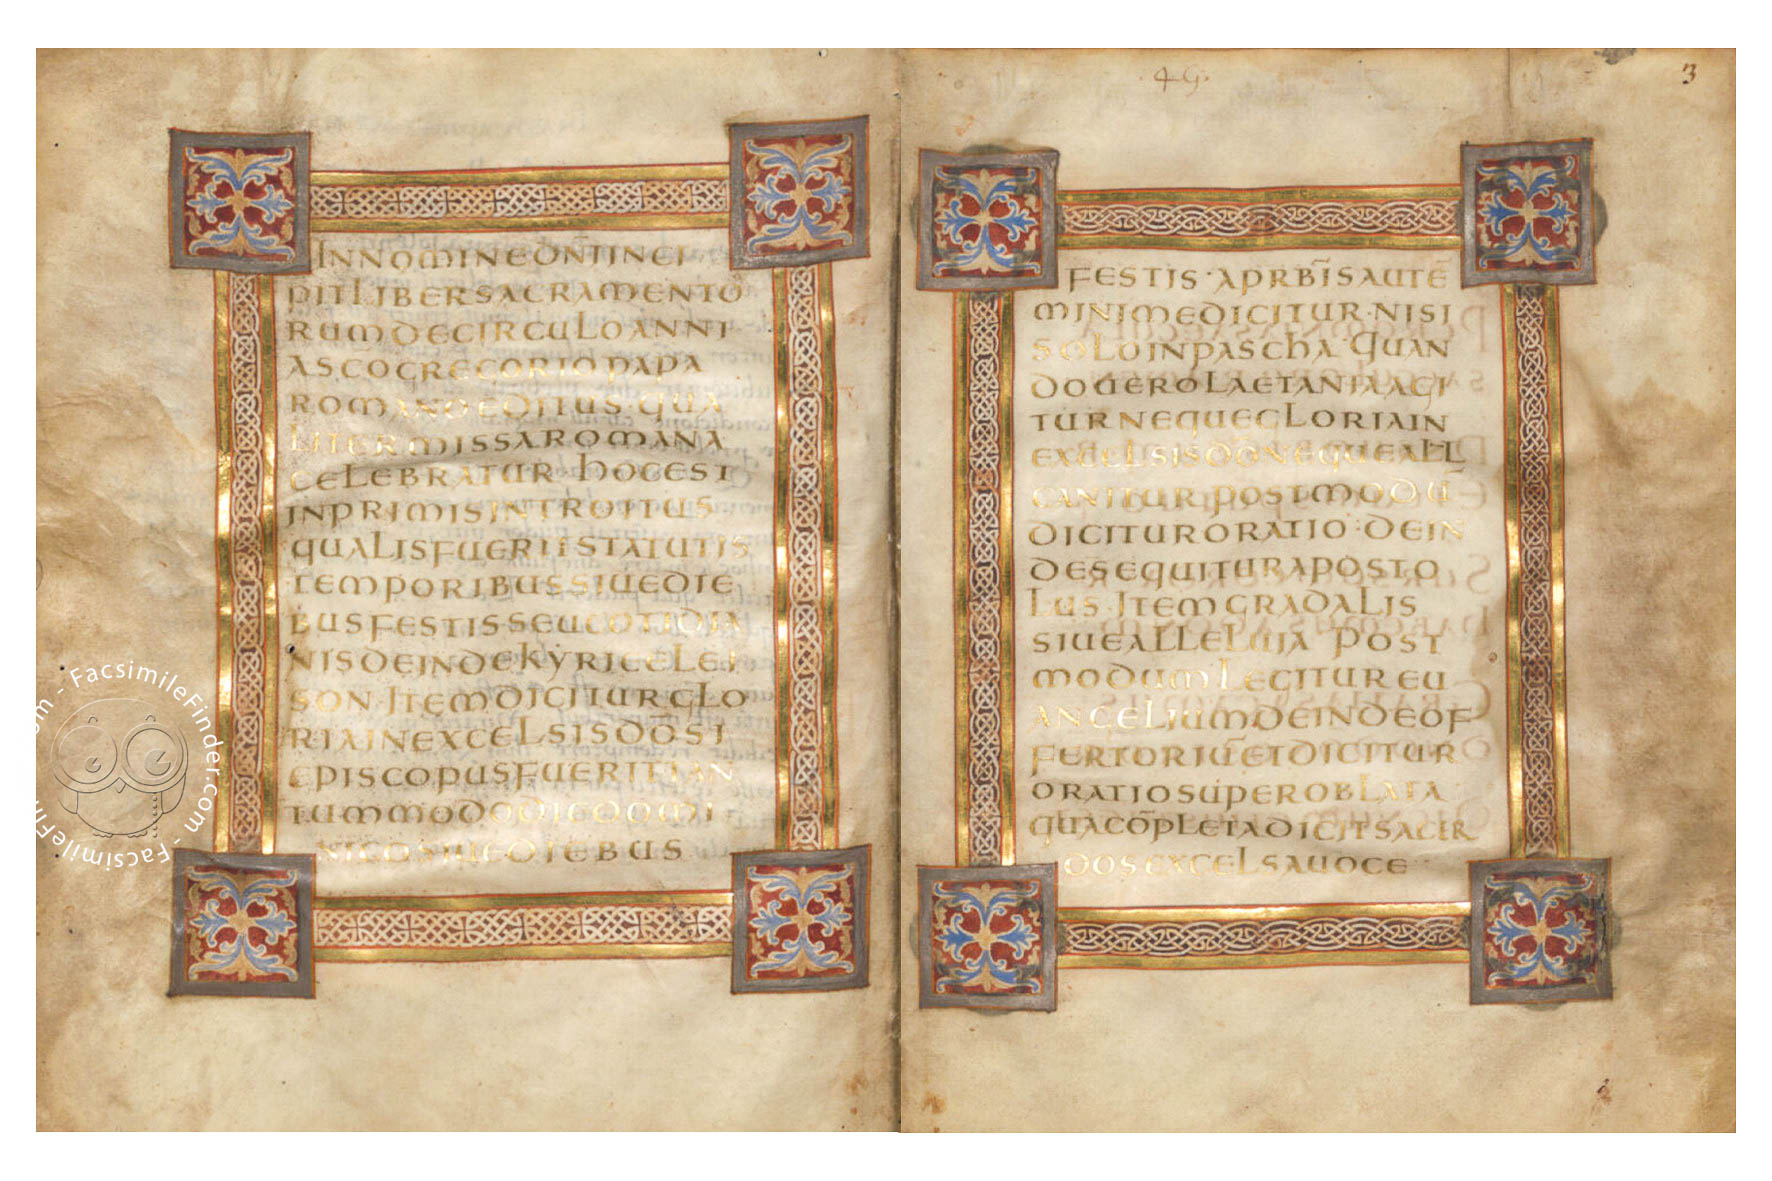 INNOMINEDNIINCI
PITLIBERSACRAMENTO
RUMDECIRCULOANNI
ASCOGREGORIOPAPA
ROMANOEDITUS·QUA
LITERMISSAROMANA
CELEBRATUR hOCEST
INPRIMISINTROITUS
QUALISFUERITSTATUTIS
TEMPORIBUSSIUEDIE
BUSFESTISSEUCOTIDIA
NISDEINDEKYRIEELEI
SON·ITEMDICITURGLO
RIAINEXCELSISDOSI
EPISCOPUSFUERITTAN
TUMMODODIEDOMI
NICOSIUEDIEBUS
·49·
3
FESTIS·APRBĪSAUTĒ
MINIMEDICITUR·NISI
SOLOINPASChA·QUAN
DOUEROLAETANIAAGI
TURNEQUEGLORIAIN
EXCELSISDŌNEQUEALL
CANITUR·POSTMODŪ
DICITURORATIO·DEIN
DESEQUITURAPOSTO
LUS·ITEMGRADALIS
SIUEALLELUIA POST
MODUMLEGITUREU
ANGELIUMDEINDEOF
FERTORIŪETDICITUR
ORATIOSUPEROBLATA
QUACŌPLETADICITSACER
DOSEXCELSAUOCE·
FacsimileFinder.com - FacsimileFinder.com -